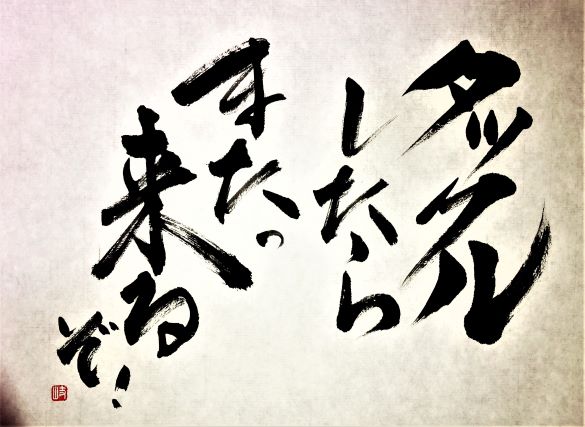 タックル
したら
またっ
来る
ぞ!
岐